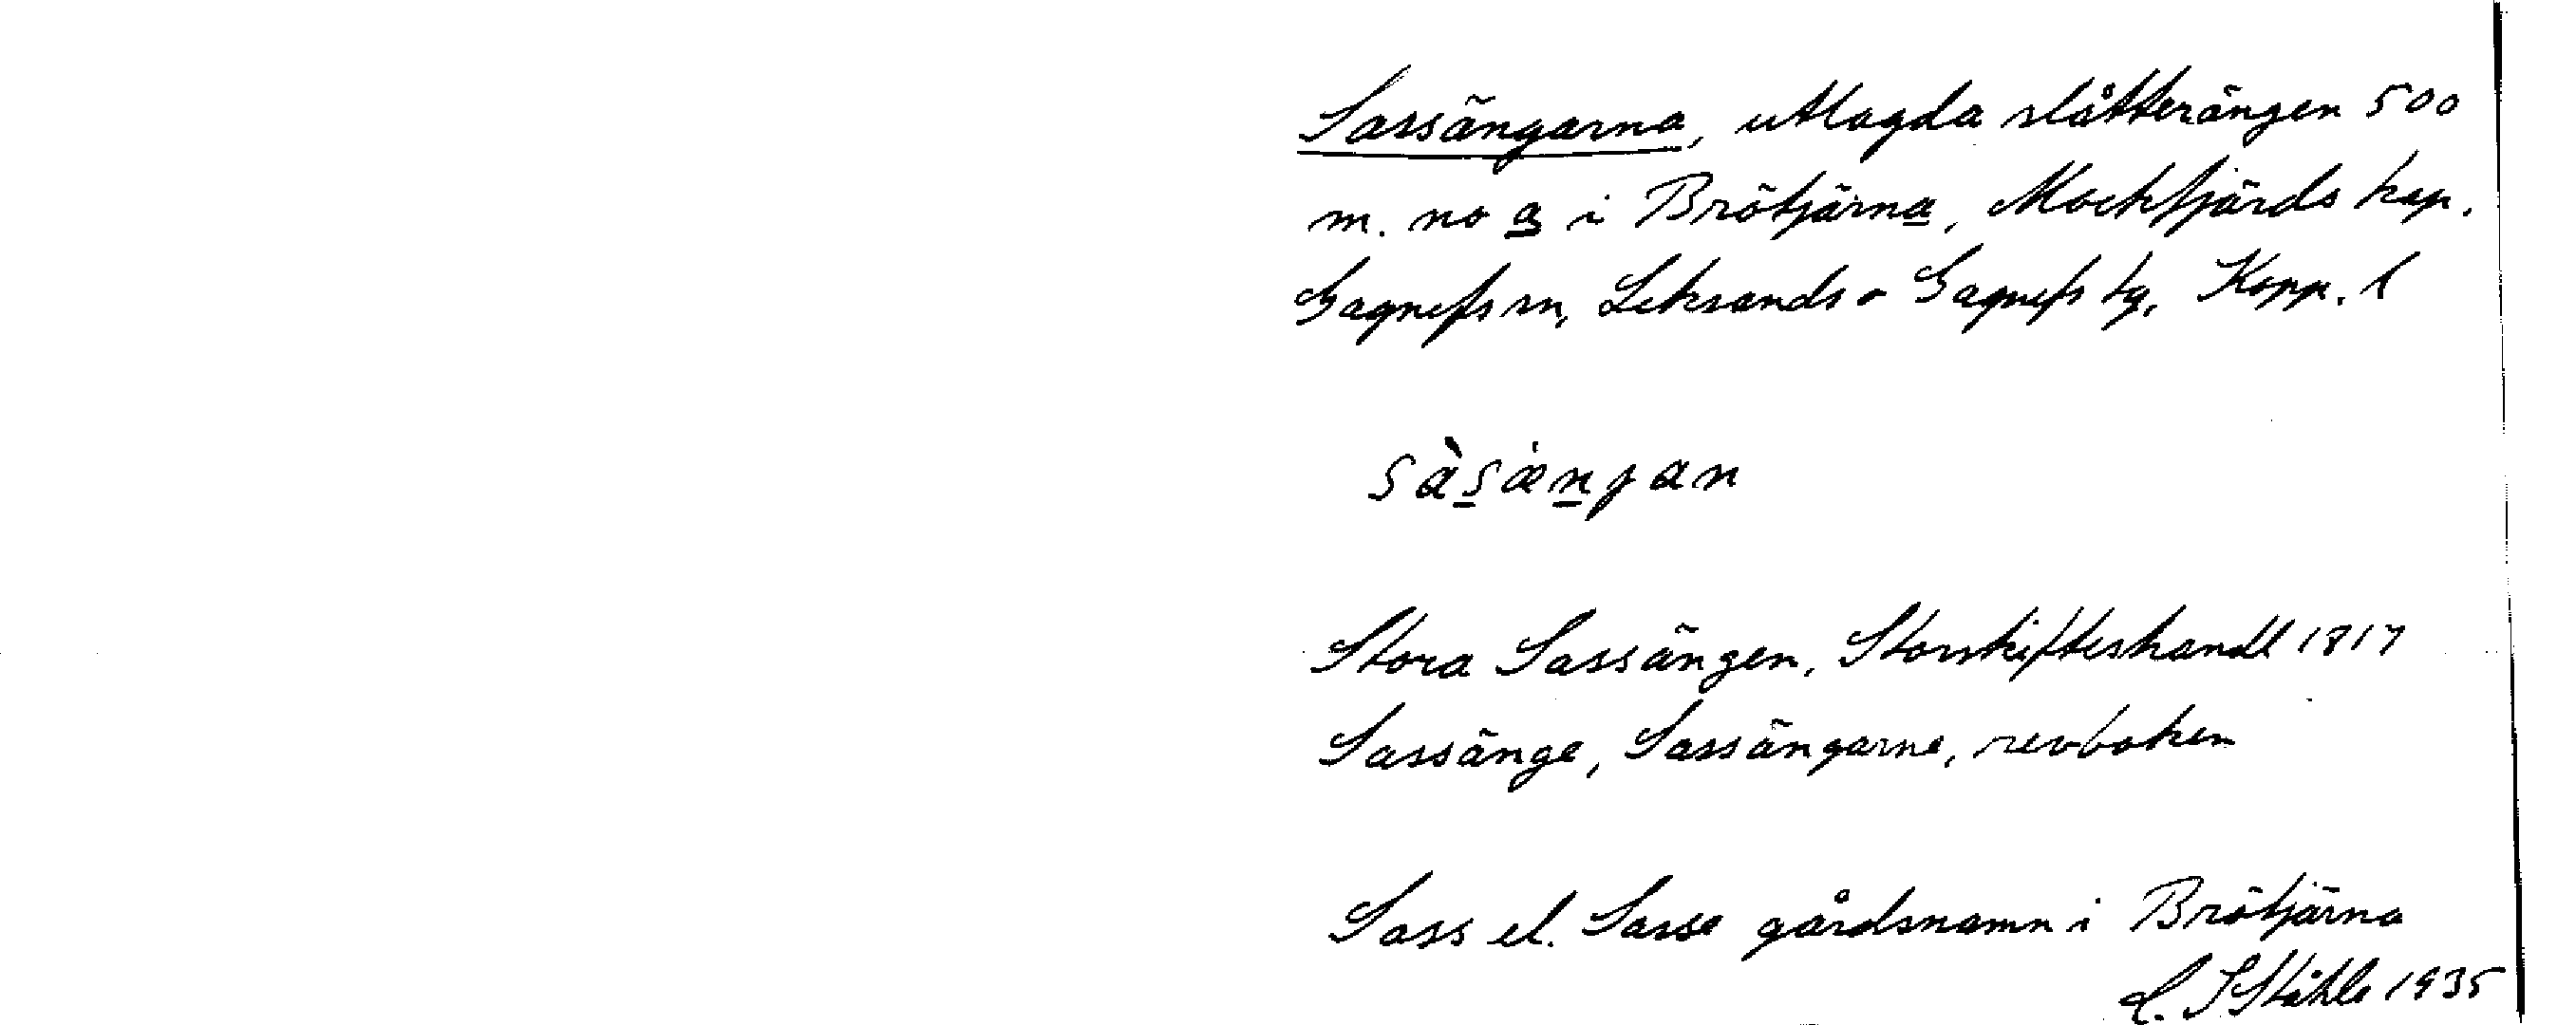 Sassängarna, utlagda slåtterängen 500
m. no a i Brötjärna, Mockfjärds kap.
Gagnefs sn, Leksands o Gagnefs tg. Kopp. l
sàsæ̀njan
Stora Sassängen, Storskifteshandl 1817
Sassänge, Sassängarne, revboken
Sass el. Sasse gårdsnamn i Brötjärna
C. I Ståhle 1935